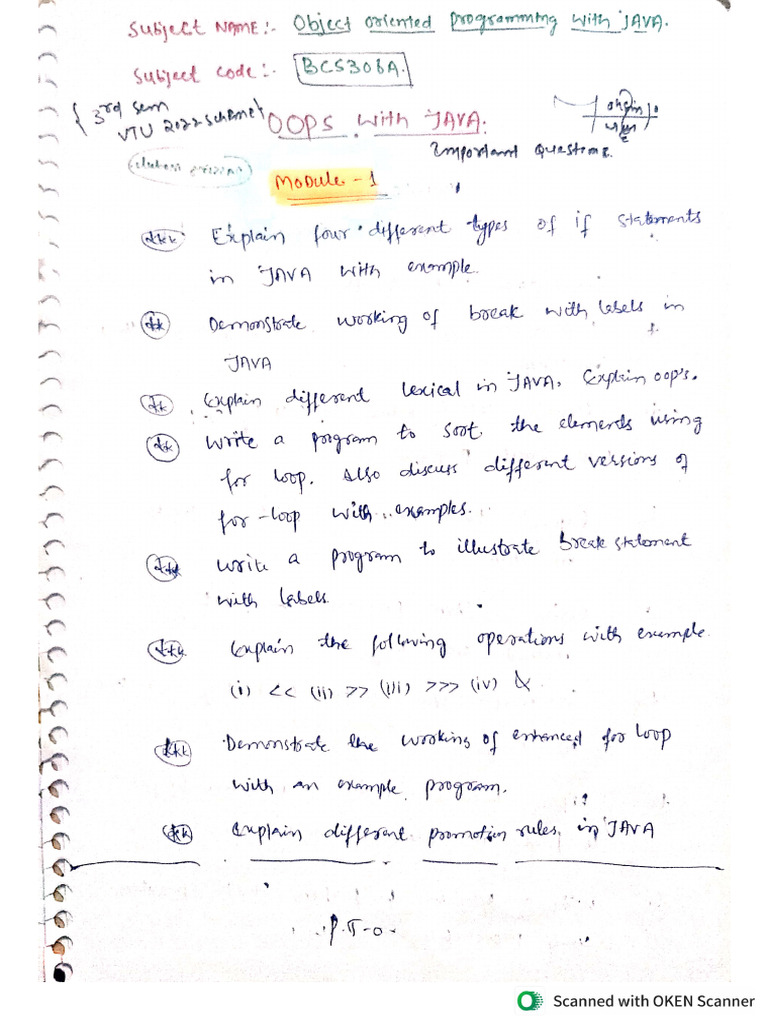 Subject NAME:- Object oriented programming with JAVA.
Subject code:- BCS306A.
{ 3rd sem
VTU 2022 scheme }
OOPS with JAVA.
Important Questions.
Module - 1
Explain four different types of if statements
in JAVA with example.
Demonstrate working of break with labels in
JAVA
Explain different lexical in JAVA. Explain oop's.
Write a program to sort the elements using
for loop. Also discuss different versions of
for-loop with examples.
Write a program to illustrate break statement
with labels.
Explain the following operations with example.
(i) << (ii) >> (iii) >>> (iv) &
Demonstrate the working of enhanced for loop
with an example program.
Explain different promotion rules in JAVA
P.T.O.
Scanned with OKEN Scanner